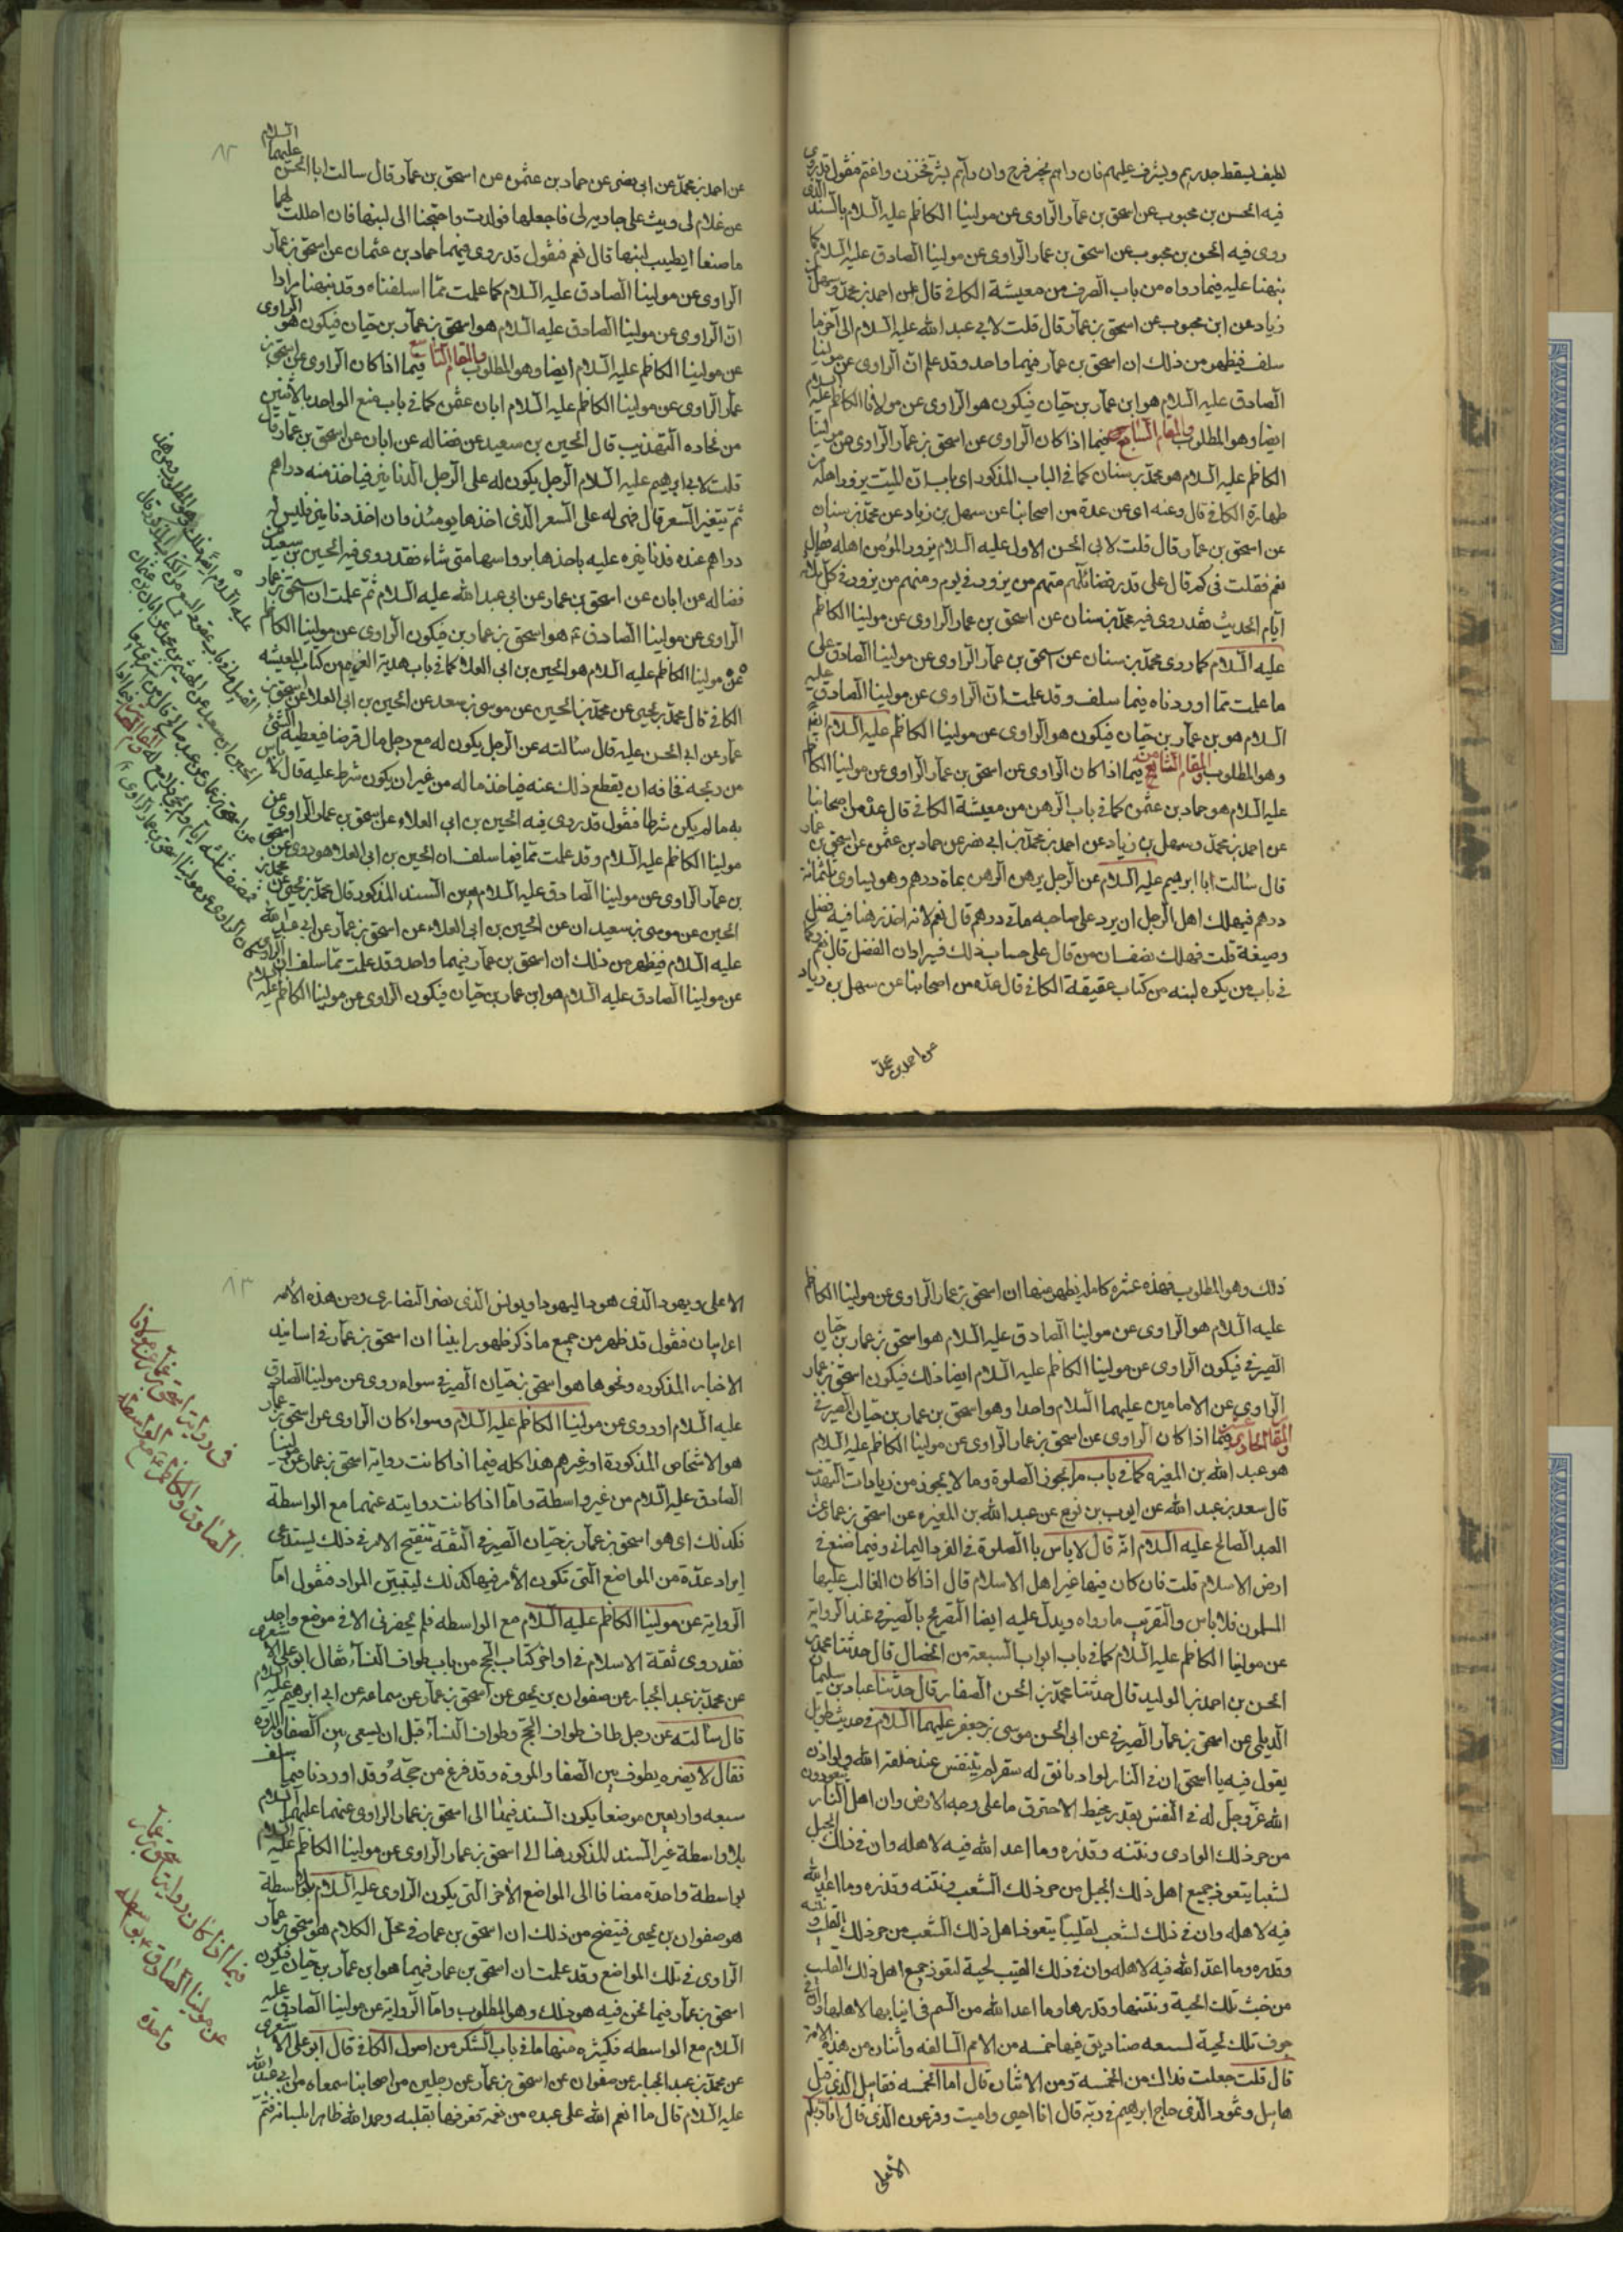 لطيف ليسقط جدارهم ويشرف عليهم فان رآهم بخير فرح وان رآهم بشر تحزن واغتم فنقول قد روى
فيه الحسن بن محبوب عن اسحق بن عمار الراوى عن مولينا الكاظم عليه السلام بالسند الذى
روى فيه الحسن بن محبوب عن اسحق بن عمار الراوى عن مولينا الصادق عليه السلام كما
نبهنا عليه فيما رواه من باب الصرف من معيشة الكافى قال عن احمد بن محمد وسهل بن
زياد عن ابن محبوب عن اسحق بن عمار قال قلت لابى عبد الله عليه السلام الى آخر ما
سلف فيظهر من ذلك ان اسحق بن عمار فيهما واحد وقد علم ان الراوى عن مولينا
الصادق عليه السلام هو ابن عمار بن حيان فيكون هو الراوى عن مولانا الكاظم عليه السلام
ايضا وهو المطلوب والمقام السابع فيما اذا كان الراوى عن اسحق بن عمار الراوى عن مولينا
الكاظم عليه السلام هو محمد بن سنان كما فى الباب المذكور اى باب ان الميت يزور اهله من
طهارة الكافى قال وعنه اى عن عدة من اصحابنا عن سهل بن زياد عن محمد بن سنان
عن اسحق بن عمار قال قلت لابى الحسن الاول عليه السلام يزور المؤمن اهله فقال
نعم فقلت فى كم قال على قدر فضائلهم منهم من يزور فى يوم ومنهم من يزور فى كل ثلاثه
ايام الحديث فقد روى فيه محمد بن سنان عن اسحق بن عمار الراوى عن مولينا الكاظم
عليه السلام كما روى محمد بن سنان عن اسحق بن عمار الراوى عن مولينا الصادق على
ما علمت مما اوردناه فيما سلف وقد علمت ان الراوى عن مولينا الصادق عليه
السلام هو بن عمار بن حيان فيكون هو الراوى عن مولينا الكاظم عليه السلام ايضا
وهو المطلوب والمقام الثامن فيما اذا كان الراوى عن اسحق بن عمار الراوى عن مولينا الكاظم
عليه السلام هو حماد بن عثمن كما فى باب الرهن من معيشة الكافى قال عدة من اصحابنا
عن احمد بن محمد وسهل بن زياد عن احمد بن محمد بن ابى نصر عن حماد بن عثمن عن اسحق بن عمار
قال سالت ابا ابرهيم عليه السلام عن الرجل يرهن الرهن بماة درهم وهو يساوى ثلثمائة
درهم فيهلك اهل الرجل ان يرد على صاحبه ماتى درهم قال نعم لانه اخذ رهنا فيه فضل
وضيعه قلت فهلك نصف الرهن قال على حساب ذلك قال نعم
فى باب من يكره لبنه من كتاب عقيقة الكافى قال عدة من اصحابنا عن سهل بن زياد
عن احمد بن محمد
٨٢
عن احمد بن محمد عن ابى نصر عن حماد بن عثمن عن اسحق بن عمار قال سالت ابا الحسن عليهما السلام
عن غلام لى وثب على جارية لى فاجعلها فولدت واحتجنا الى لبنها فان احللت لهما
ما صنعا ايطيب لبنها قال نعم فنقول قد روى فيهما حماد بن عثمان عن اسحق بن عمار
الراوى عن مولينا الصادق عليه السلام كما علمت مما اسلفناه وقد نبهنا مرارا
ان الراوى عن مولينا الصادق عليه السلام هو اسحق بن عمار بن حيان فيكون هو الراوى
عن مولينا الكاظم عليه السلام ايضا وهو المطلوب والمقام التاسع فيما اذا كان الراوى عن اسحق بن
عمار الراوى عن مولينا الكاظم عليه السلام ابان عثمن كما فى باب بيع الواحد بالاثنين
من تجاره التهذيب قال الحسين بن سعيد عن فضاله عن ابان عن اسحق بن عمار قال
قلت لابى ابرهيم عليه السلام الرجل يكون له على الرجل الدنانير فياخذ منه دراهم
ثم يتغير السعر قال فهى له على السعر الذى اخذها يومئذ وان اخذ دنانير فليس له
دراهم عنده فدنانيره عليه ياخذها برؤسها متى شاء فقد روى فيه الحسين بن سعيد عن
فضاله عن ابان عن اسحق بن عمار عن ابى عبد الله عليه السلام ثم علمت ان اسحق بن عمار
الراوى عن مولينا الصادق ع هو اسحق بن عمار بن حيان فيكون الراوى عن مولينا الكاظم
عن مولينا الكاظم عليه السلام هو الحسين بن ابى العلا كما فى باب هدية الغريم من كتاب المعيشه
الكافى قال محمد بن يحيى عن محمد بن الحسين عن موسى بن سعد عن الحسين بن ابى العلا عن اسحق بن
عمار عن ابى الحسن عليه قال سالته عن الرجل يكون له مع رجل مال قرضا فيعطيه الشئ
من ربحه مخافه ان يقطع ذلك عنه فياخذ ماله من غير ان يكون شرط عليه قال لا باس
به ما لم يكن شرطا فنقول قد روى فيه الحسين بن ابى العلاء عن اسحق بن عمار الراوى عن
مولينا الكاظم عليه السلام وقد علمت مما فيما سلف ان الحسين بن ابى العلا هو روى عن اسحق
بن عمار الراوى عن مولينا الصادق عليه السلام بعين السند المذكور قال محمد بن يحيى عن محمد بن
الحسين عن موسى بن سعيدان عن الحسين بن ابى العلاء عن اسحق بن عمار عن ابى عبد الله
عليه السلام فيظهر من ذلك ان اسحق بن عمار فيهما واحد وقد علمت مما سلف ان الراوى
عن مولينا الصادق عليه السلام هو ابن عمار بن حيان فيكون الراوى عن مولينا الكاظم عليه السلام
ذلك وهو المطلوب فهذه عشره كامله يظهر منها ان اسحق بن عمار الراوى عن مولينا الكاظم
عليه السلام هو الراوى عن مولينا الصادق عليه السلام هو اسحق بن عمار بن حيان
الصيرفى فيكون الراوى عن مولينا الكاظم عليه السلام ايضا ذلك فيكون اسحق بن عمار
الراوى عن الامامين عليهما السلام واحدا وهو اسحق بن عمار بن حيان الصيرفى
والمقام الحادى عشر فيما اذا كان الراوى عن اسحق بن عمار الراوى عن مولينا الكاظم عليه السلام
هو عبد الله بن المغيره كما فى باب ما يجوز الصلوة وما لا يجوز من زيادات التهذيب
قال سعد بن عبد الله عن ايوب بن نوح عن عبد الله بن المغيره عن اسحق بن عمار عن
العبد الصالح عليه السلام انه قال لا باس بالصلوة فى الفرو اليمانى وفيما صنع فى
ارض الاسلام قلت فان كان فيها غير اهل الاسلام قال اذا كان الغالب عليها
المسلمون فلا باس والتقريب ما رواه ويدل عليه ايضا التصريح بالصيرفى عند الرواية
عن مولينا الكاظم عليه السلام كما فى باب ابواب السبعة من الخصال قال حدثنا محمد بن
الحسن بن احمد بن الوليد قال حدثنا محمد بن الحسن الصفار قال حدثنا عباد بن سليمان
الديلمى عن اسحق بن عمار الصيرفى عن ابى الحسن موسى بن جعفر عليهما السلام فى حديث طويل
يقول فيه يا اسحق ان فى النار لواديا يق له سقر لم يتنفس منذ خلقه الله ولو اذن
الله عز وجل له فى التنفس بقدر مخيط لاحترق ما على وجه الارض وان اهل النار يتعوذون
من حر ذلك الوادى ونتنه وقذره وما اعد الله فيه لاهله وان فى ذلك الجبل
لشعبا يتعوذ جميع اهل ذلك الجبل من حر ذلك الشعب ونتنه وقذره وما اعد الله
فيه لاهله وان فى ذلك لشعب لقليبا يتعوذ اهل ذلك الشعب من حر ذلك القليب ونتنه
وقذره وما اعد الله فيه لاهله وان فى ذلك القليب لحية لتعوذ جميع اهل ذلك القليب
من خبث تلك الحية ونتنها وقذرها وما اعد الله من السم فى انيابها لاهلها وان فى
جوف تلك لحية لسبعه صناديق فيها خمسه من الامم السالفه واثنان من هذه الامه
قال قلت جعلت فداك من الخمسه ومن الاثنان قال اما الخمسه فقابيل الذى قتل
هابيل ونمرود الذى حاج ابرهيم فى ربه قال انا احيى واميت وفرعون الذى قال انا ربكم
الاعلى
٨٣
الاعلى ويهود الذى هود اليهود وبولس الذى نصر النصارى ومن هذه الامه
اعرابيان فنقول قد ظهر من جميع ما ذكر ظهورا بينا ان اسحق بن عمار فى اسانيد
الاخبار المذكوره ونحوها هو اسحق بن حيان الصيرفى سواء روى عن مولينا الصادق
عليه السلام او روى عن مولينا الكاظم عليه السلام وسواء كان الراوى عن اسحق بن عمار
هو الاشخاص المذكورة او غيرهم هذا كله فيما اذا كانت رواية اسحق بن عمار عن مولينا
الصادق عليه السلام من غير واسطة واما اذا كانت روايته عنهما مع الواسطة
فكذلك اى هو اسحق بن عمار بن حيان الصيرفى الثقة تنقيح الامر فى ذلك ليستدعى
ايراد عدة من المواضع التى تكون الأمر فيها كذلك ليتبين المراد فنقول اما
الرواية عن مولينا الكاظم عليه السلام مع الواسطه فلم يحضرنى الا فى موضع واحد
فقد روى ثقة الاسلام فى اواخر كتاب الحج من باب طواف النساء فقال ابو على الاشعرى
عن محمد بن عبد الجبار عن صفوان بن يحيى عن اسحق بن عمار عن سماعه عن ابى ابرهيم عليه السلام
قال سالته عن رجل طاف طواف الحج وطواف النساء قبل ان يسعى بين الصفا والمروه
فقال لا يضره يطوف بين الصفا والمروة وقد فرغ من حجه وقد اوردنا فيما سلف
سبعه واربعين موضعا يكون السند فيها الى اسحق بن عمار الراوى عنهما عليهما السلام
بلا واسطة غير السند المذكور هنا الى اسحق بن عمار الراوى عن مولينا الكاظم عليه السلام
بواسطة واحدة مضافا الى المواضع الأخر التى يكون الراوى عليه السلام بلا واسطة
هو صفوان بن يحيى فيتضح من ذلك ان اسحق بن عمار فى محل الكلام هو اسحق بن عمار
الراوى فى تلك المواضع وقد علمت ان اسحق بن عمار فيهما هو ابن عمار بن حيان فيكون
اسحق بن عمار فيما نحن فيه هو ذلك وهو المطلوب واما الرواية عن مولينا الصادق عليه
السلام مع الواسطه فكثيره منها ما فى باب الشكر من اصول الكافى قال ابو على الاشعرى
عن محمد بن عبد الجبار عن صفوان عن اسحق بن عمار عن رجلين من اصحابنا سمعاه من ابى عبد الله
عليه السلام قال ما انعم الله على عبده من نعمة فعرفها بقلبه وحمد الله ظاهرا بلسانه فتم
فى رواية اسحق بن عمار عن مولانا
الصادق والكاظم ع مع الواسطة
فيما اذا كان رواية اسحق بن عمار
عن مولينا الصادق ع بواسطه
واحدة